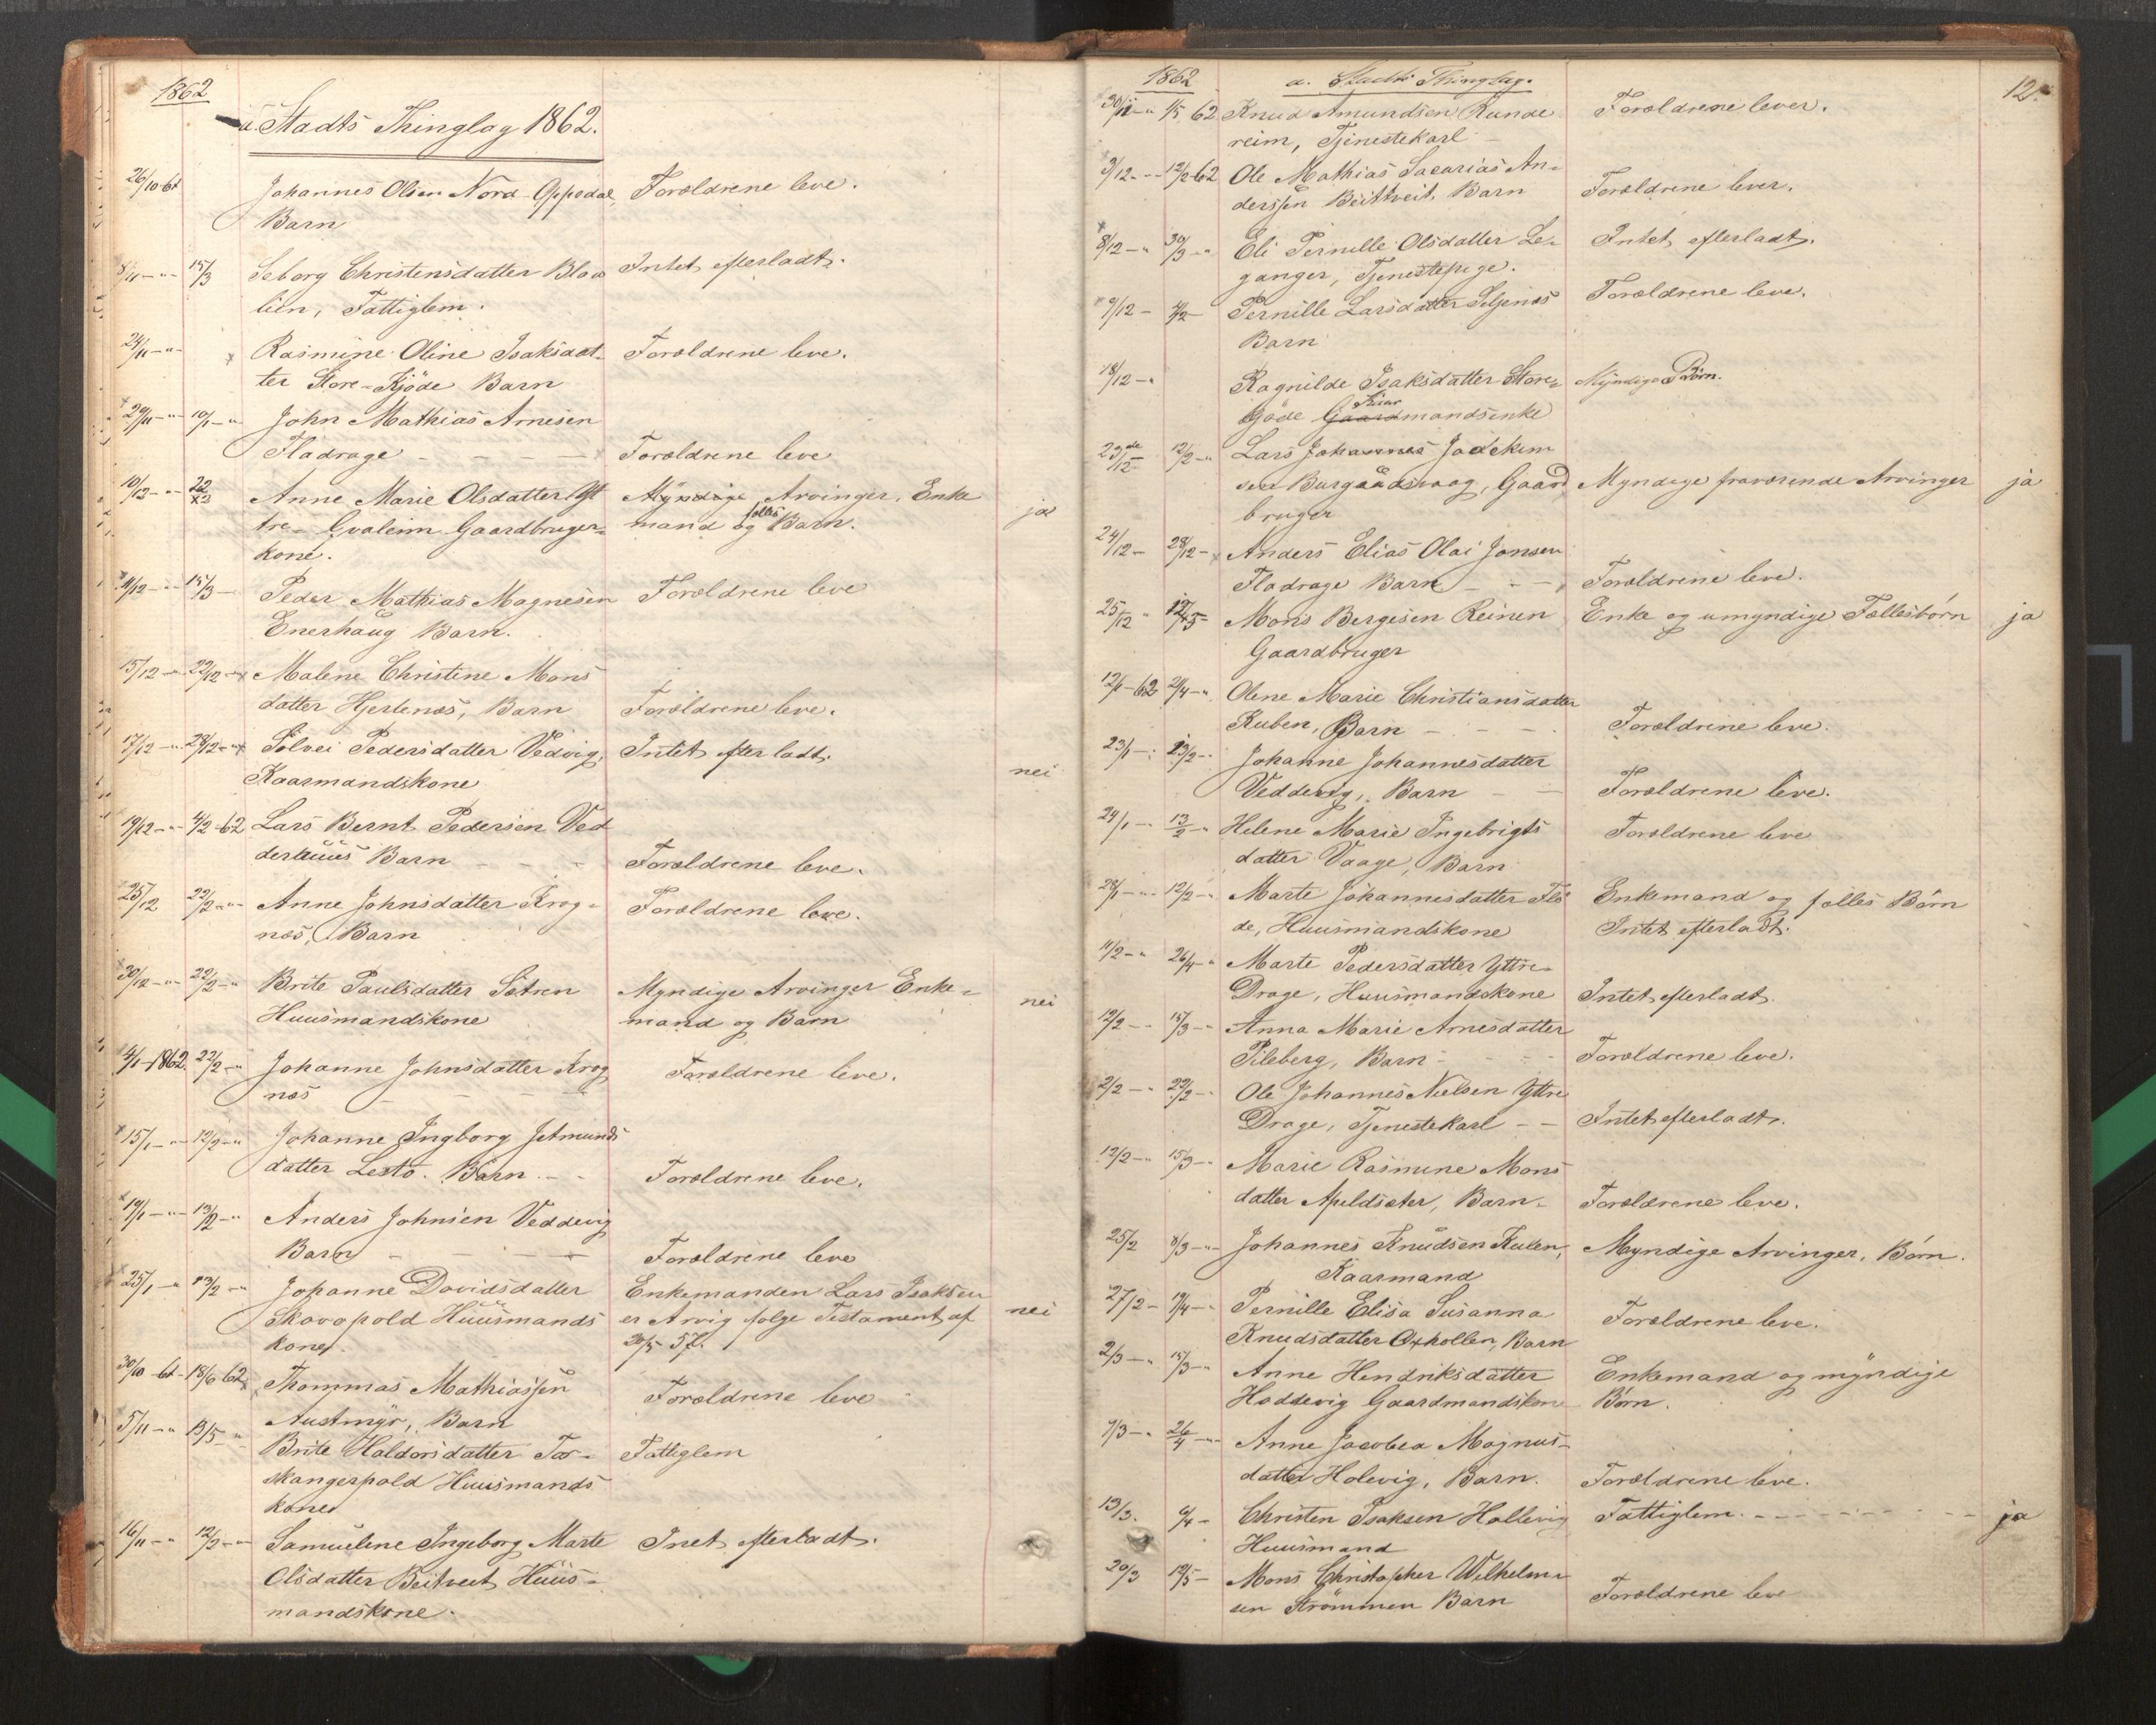 1862
a. Stadts Thinglag 1862.
26/10-61 Johannes Olsen Nord-Oppedal, Forældrene leve.
Barn
8/11 - " - 15/3 Seborg Christensdatter Blaa Intet efterladt.
lien, Fattiglem.
24/11 - " - Rasmine Oline Isaksdat- Forældrene leve.
ter Store-Kjöde Barn
29/11 - " - 10/1 - " John Mathias Arnesen
Fladrage - - - - Forældrene leve
10/12 - " - 22/3 Anne Marie Olsdatter Yt Myndige Arvinger, Enke
tre- Hvaleim Gaardbruger- mand og fælles Barn. ja
kone.
11/12 - " - 15/3 - Peder Mathias Magnesen Forældrene leve
Enerhaug Barn.
15/12 - " - 22/12 - " Malene Christine Mons
datter Hjertenæs, Barn Forældrene leve.
17/12 - " 28/12 - " Sølvei Pedersdatter Vedvig, Intet efterladt.
Kaarmandskone nei
19/12 - " - 4/2-62 Lars Bernt Pedersen Ved
derhuus Barn - - - Forældrene leve.
25/12 22/2 - " - Anne Johnsdatter Krog- Forældrene leve.
næs, Barn
30/12 - " - 22/2 - " Brite Paulsdatter Sætren Myndige Arvinger Enke-
Huusmandskone mand og Barn nei
4/1-1862. 22/2 - " Johanne Johnsdatter Krog Forældrene leve.
næs - - - -
15/1 - " - 12/2 - " Johanne Ingborg Jetmunds
datter Lestø. Barn. - - Forældrene leve.
19/1 - " - 13/2 - " Anders Johnsen Veddevig
Barn - - - - Forældrene leve
25/1 - " 13/2 - " Johanne Davidsdatter Enkemanden Lars Isaksen
Skovopold Huusmands er Arvig følge Testament af nei
kone. 20/5 57.
30/10-61-18/6 62 Thommas Mathiassen Forældrene leve
Austmyr, Barn
5/11 - " 13/5 - " Brite Haldorsdatter Tor- Fattiglem
skangerpold Huusmands
kone
16/11 - " 12/2 - " Samuelene Ingeborg Marte Inet efterladt.
Olsdatter Beitveit Huus-
mandskone.
1862 a. Stadts Thinglag. 12.
30/11 - " 1/5 62 Knud Amundsen Runde Forældrene lever.
reim, Tjenestekarl -
3/12 - " - 12/2-62 Ole Mathias Sacarias An-
derssen Beitveit, Barn Forældrene lever.
8/12 - " 30/3 - " Eli Pernille Olsdatter Le- Intet efterladt.
ganger, Tjenestepige.
9/12 - 4/2 - Pernille Larsdatter Seljenæs Forældrene leve.
Barn
18/12 - " Ragnilde Isaksdatter Store- Myndige Börn.
Kjöde Gaardmandsenke
23de/12 12/2 - " Lars Johannes Joackim
sen Burgaadsvaag, Gaard Myndige fraværende Arvinger ja
bruger
24/12 - 28/12 - Anders Elias Olai Jonsen
Fladrage Barn - - - Forældrene leve.
25/12 " Mons Bergesen Reinen Enke og umyndige Fællesbörn ja
Gaardbruger
12/1-62 21/4 - " Olene Marie Christiansdatter
Ruben, Barn - - - Forældrene leve.
23/1 - " 23/2 - " Johanne Johannesdatter
Veddevig, Barn - - Forældrene leve.
24/1 - " 13/2 - " Helene Marie Ingebrigts Forældrene leve
datter Vaage, Barn
28/1 - " - 12/2 - " Marte Johannesdatter Flö Enkemand og fælles Börn
de, Huusmandskone Intet efterladt.
11/2 - " 26/4 - " Marte Pedersdatter Yttre-
Drage, Huusmandskone Intet efterladt.
12/2 - " 15/3 - " Anna Marie Arnesdatter
Pileberg, Barn - - - - Forældrene leve.
2/2 - " 22/2 - " Ole Johannes Nielsen Yttre
Drage, Tjenestekarl - - Intet efterladt.
12/2 - " 15/3 - " Marie Rasmine Mons
datter Apeldsæter, Barn - Forældrene leve.
25/2 8/3 - " - Johannes Knudsen Ruben, Myndige Arvinger, Börn.
Kaarmand
27/2 - 19/4 - " Pernille Elisa Susanna Forældrene leve.
Knudsdatter Oxhollen, Barn
2/3 - " 15/3 - " Anne Hendriksdatter Enkemand og myndige
Hoddevig Gaardmandskone Börn.
7/3 - " 26/4 - " Anne Jacobea Magnus-
datter Holevig, Barn. Forældrene leve.
13/3. 6/4 - Christen Isaksen Hollevig Fattiglem. - - - - - ja
Huusmand
20/3 19/5 - Mons Christopher Wilhelm-
sen Strömmen Barn Forældrene leve